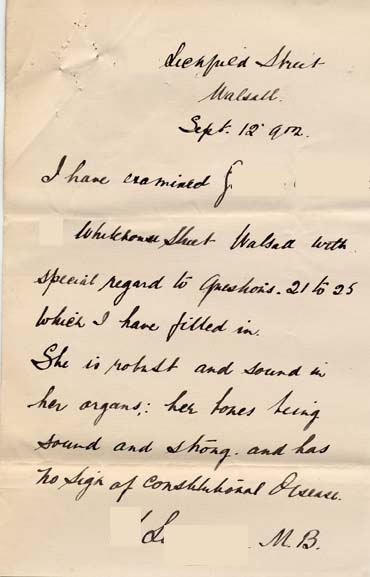 Lichfield Street
Walsall.
Sept. 12 902.
I have examined
Whitehouse Street Walsall with
special regard to Questions. 21 to 25
which I have filled in.
She is robust and sound in
her organs: her bones being
sound and strong. and has
no sign of constitutional Disease.
M.B.